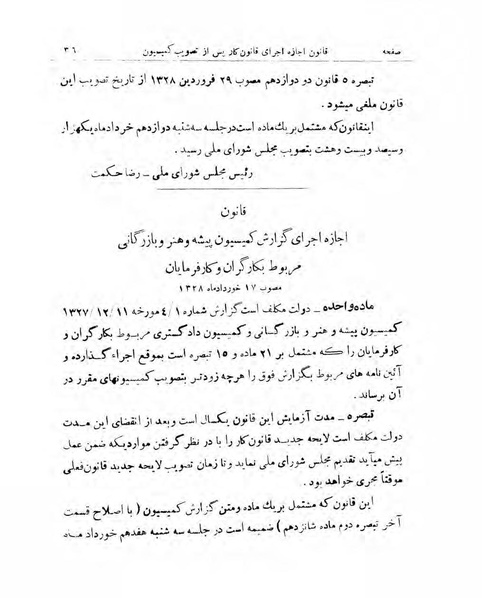 صفحه قانون اجازه اجرای قانون کار پس از تصویب کمیسیون ۳۶
تبصره ۵ قانون دو دوازدهم مصوب ۲۹ فروردین ۱۳۲۸ از تاریخ تصویب این
قانون ملغی میشود .
اینقانون که مشتمل بر یك ماده است در جلسه سه‌شنبه دوازدهم خرداد ماه یکهزار
وسیصد و بیست و هشت بتصویب مجلس شورای ملی رسید .
رئیس مجلس شورای ملی ــ رضا حکمت
قانون
اجازه اجرای گزارش کمیسیون پیشه و هنر و بازرگانی
مربوط بکارگران و کارفرمایان
مصوب ۱۷ خردادماه ۱۳۲۸
ماده واحده ــ دولت مکلف است گزارش شماره ۴/۱ مورخه ۱۳۲۷/۱۲/۱۱
کمیسیون پیشه و هنر و بازرگانی و کمیسیون دادگستری مربوط بکارگران و
کارفرمایان را که مشتمل بر ۲۱ ماده و ۱۵ تبصره است بموقع اجراء گذارده و
آئین نامه های مربوط بگزارش فوق را هرچه زودتر بتصویب کمیسیونهای مقرر در
آن برساند .
تبصره ــ مدت آزمایش این قانون یکسال است و بعد از انقضای این مدت
دولت مکلف است لایحه جدید قانون کار را با در نظر گرفتن مواردیکه ضمن عمل
پیش میآید تقدیم مجلس شورای ملی نماید و تا زمان تصویب لایحه جدید قانون فعلی
موقتاً مجری خواهد بود .
این قانون که مشتمل بر یك ماده و متن گزارش کمیسیون ( با اصلاح قسمت
آخر تبصره دوم ماده شانزدهم ) ضمیمه است در جلسه سه شنبه هفدهم خرداد ماه